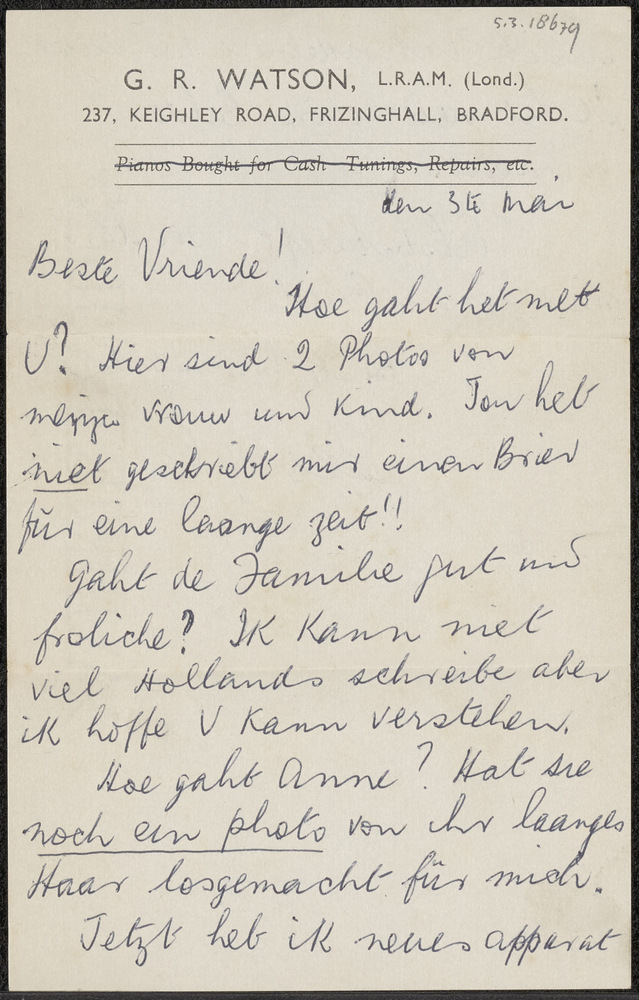 5.3.18679
G. R. WATSON, L.R.A.M. (Lond.)
237, KEIGHLEY ROAD, FRIZINGHALL, BRADFORD.
Pianos Bought for Cash Tunings, Repairs, etc.
den 3te Mai
Beste Vriende!
Hoe gaht het met
U? Hier sind 2 Photos von
vrouw und Kind. Ton heb
niet geschriebt mir einen Brief
für eine laange zeit!!
Gaht de Familie gut und
froliche? Ik Kann niet
viel Hollands schreibe aber
ik hoffe U Kann verstehen.
Hoe gaht Anne? Hat sie
noch ein photo von ihr laanges
Haar losgemacht für mich.
Jetzt heb ik neues apparat